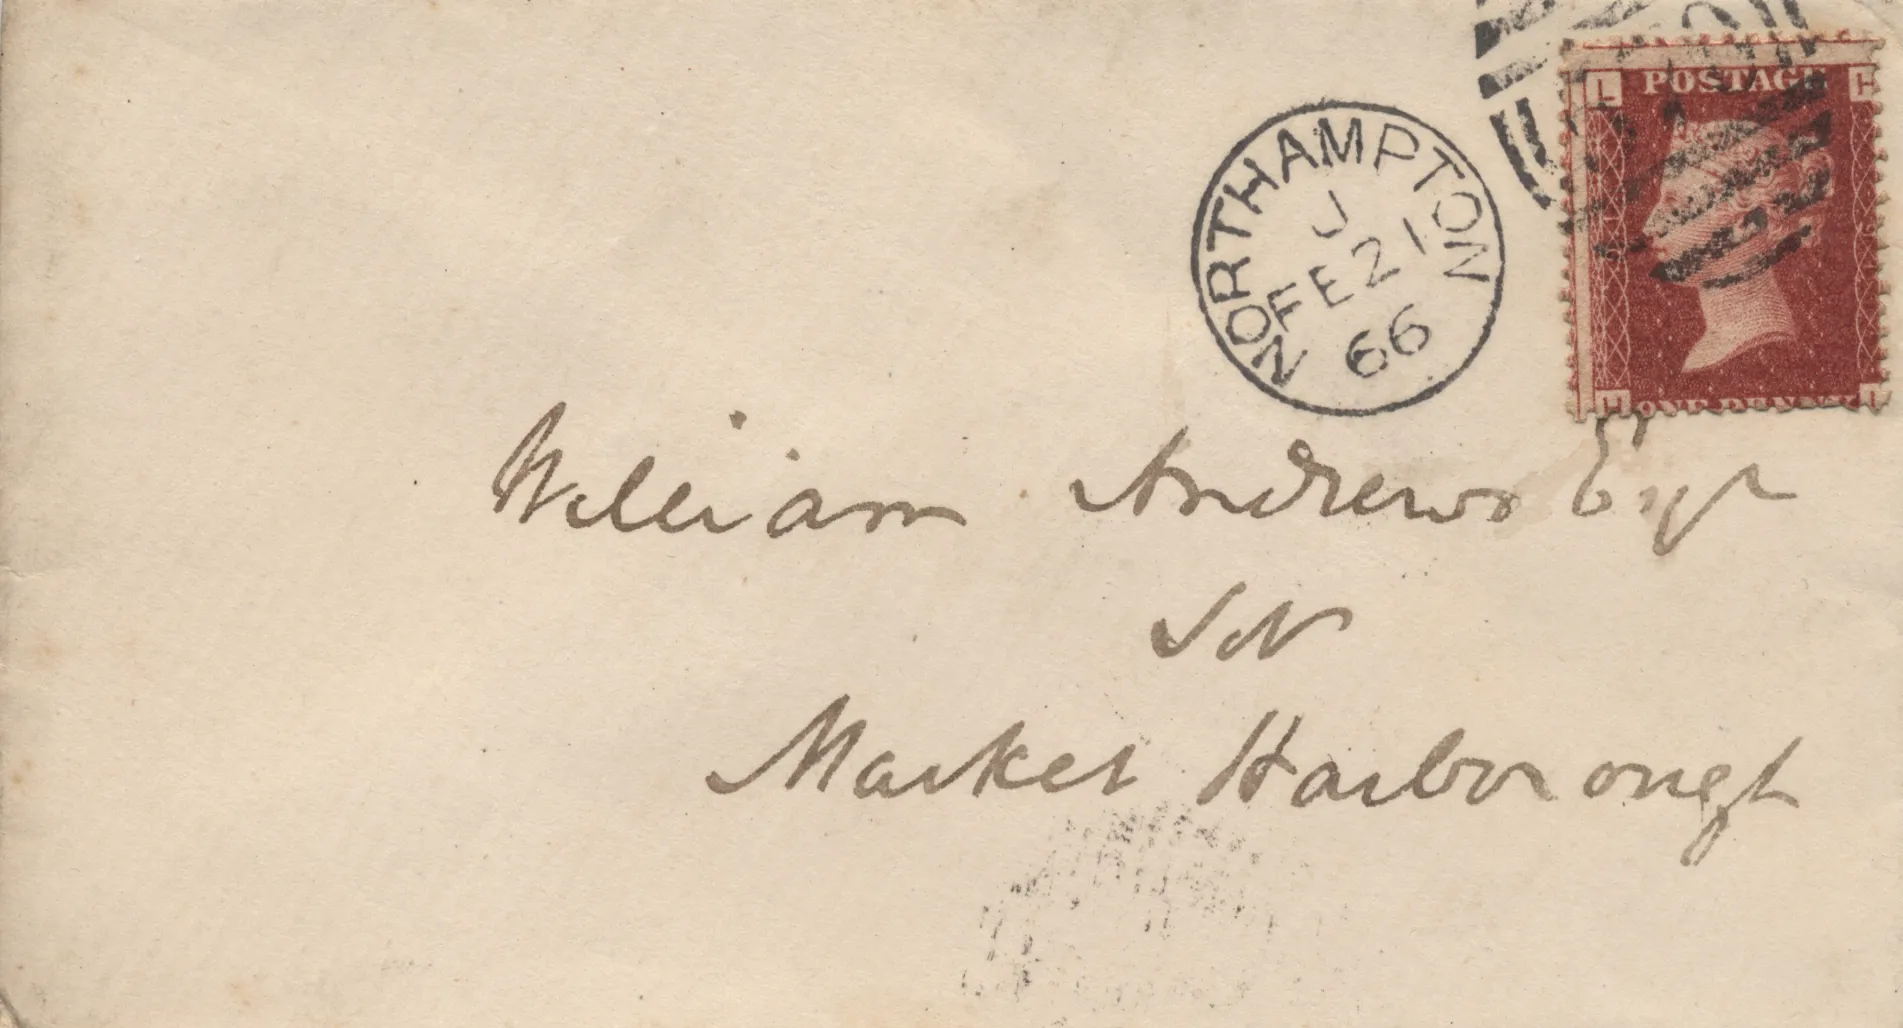 L POSTAGE
NORTHAMPTON
J
FE 21
66
ONE PENNY
William Andrews Esqr
Market Harborough